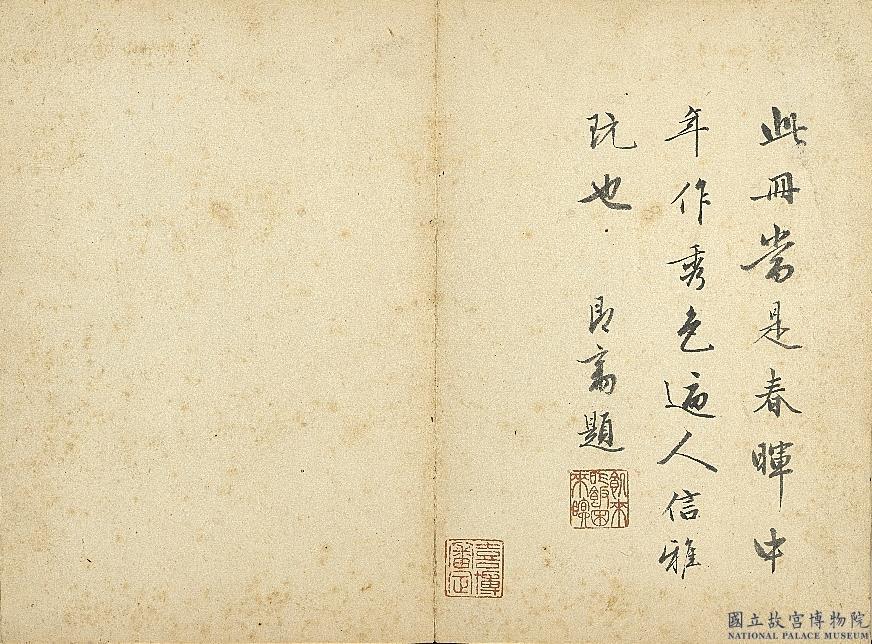 此冊當是春暉中
年作秀色逼人信雅
玩也 即斋題
飢來
喫飯困
來眠
國立故宮博物院
NATIONAL PALACE MUSEUM